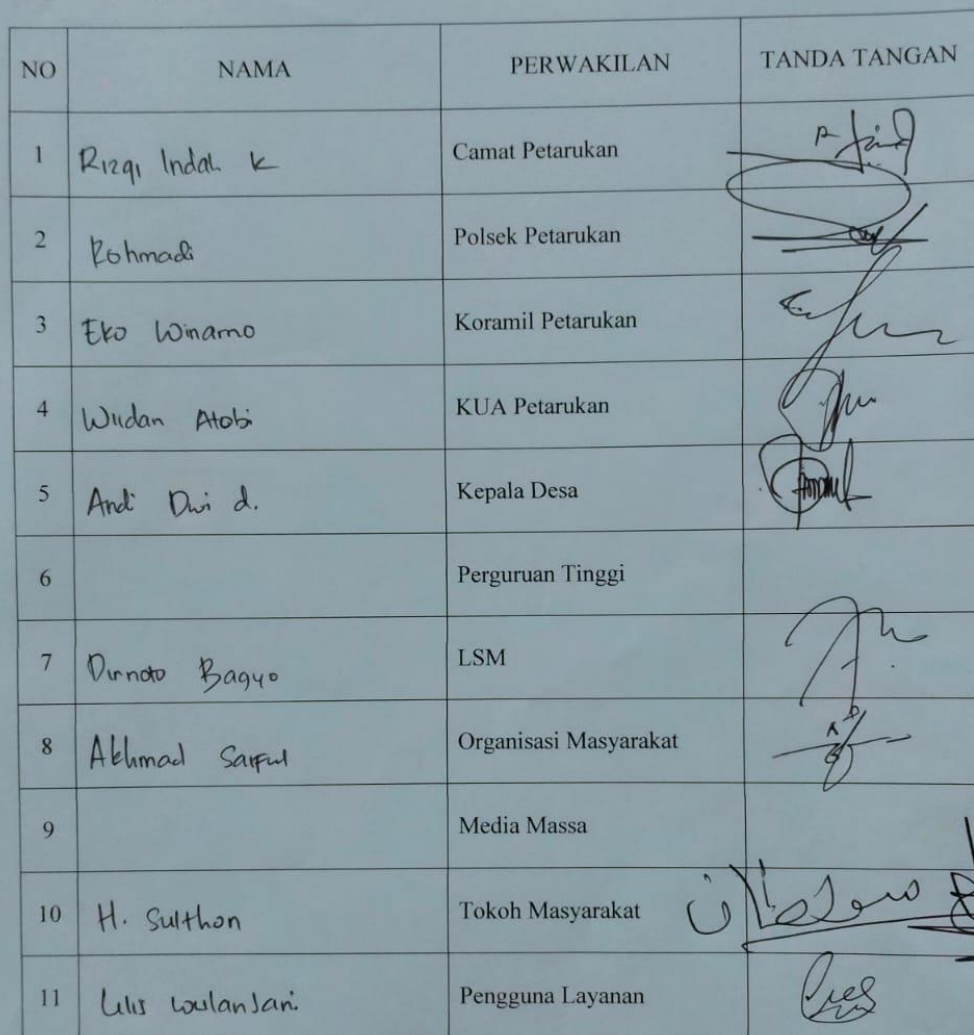 NO NAMA PERWAKILAN TANDA TANGAN
1 Rizqi Indah K Camat Petarukan
2 Rohmadi Polsek Petarukan
3 Eko Winarno Koramil Petarukan
4 Wildan Atobi KUA Petarukan
5 Andi Dwi d. Kepala Desa
6 Perguruan Tinggi
7 Dirnoto Bagyo LSM
8 Akhmad Saiful Organisasi Masyarakat
9 Media Massa
10 H. Sulthon Tokoh Masyarakat
11 Lilis Wulansari Pengguna Layanan